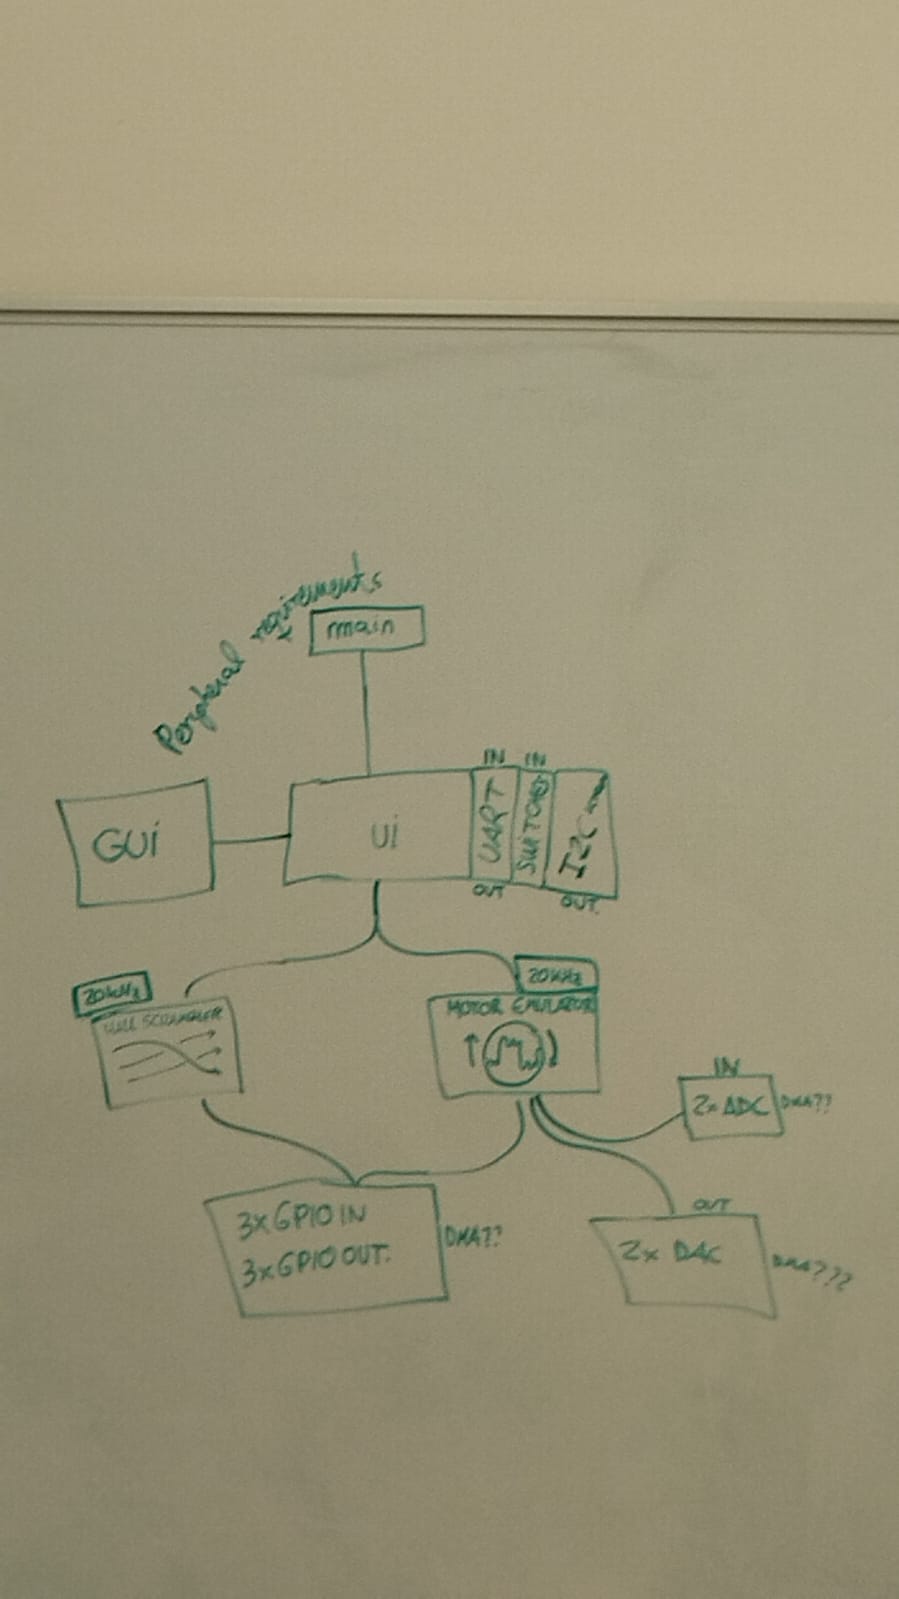 Peripheral requirements
main
GUi
ui
IN
UART
OUT
IN
SWITCHES
I2C
OUT.
20kHz
HALL SCRAMBLER
20kHz
MOTOR EMULATOR
IN
2x ADC
DMA??
3x GPIO IN
3x GPIO OUT.
DMA??
OUT
2x DAC
DMA???